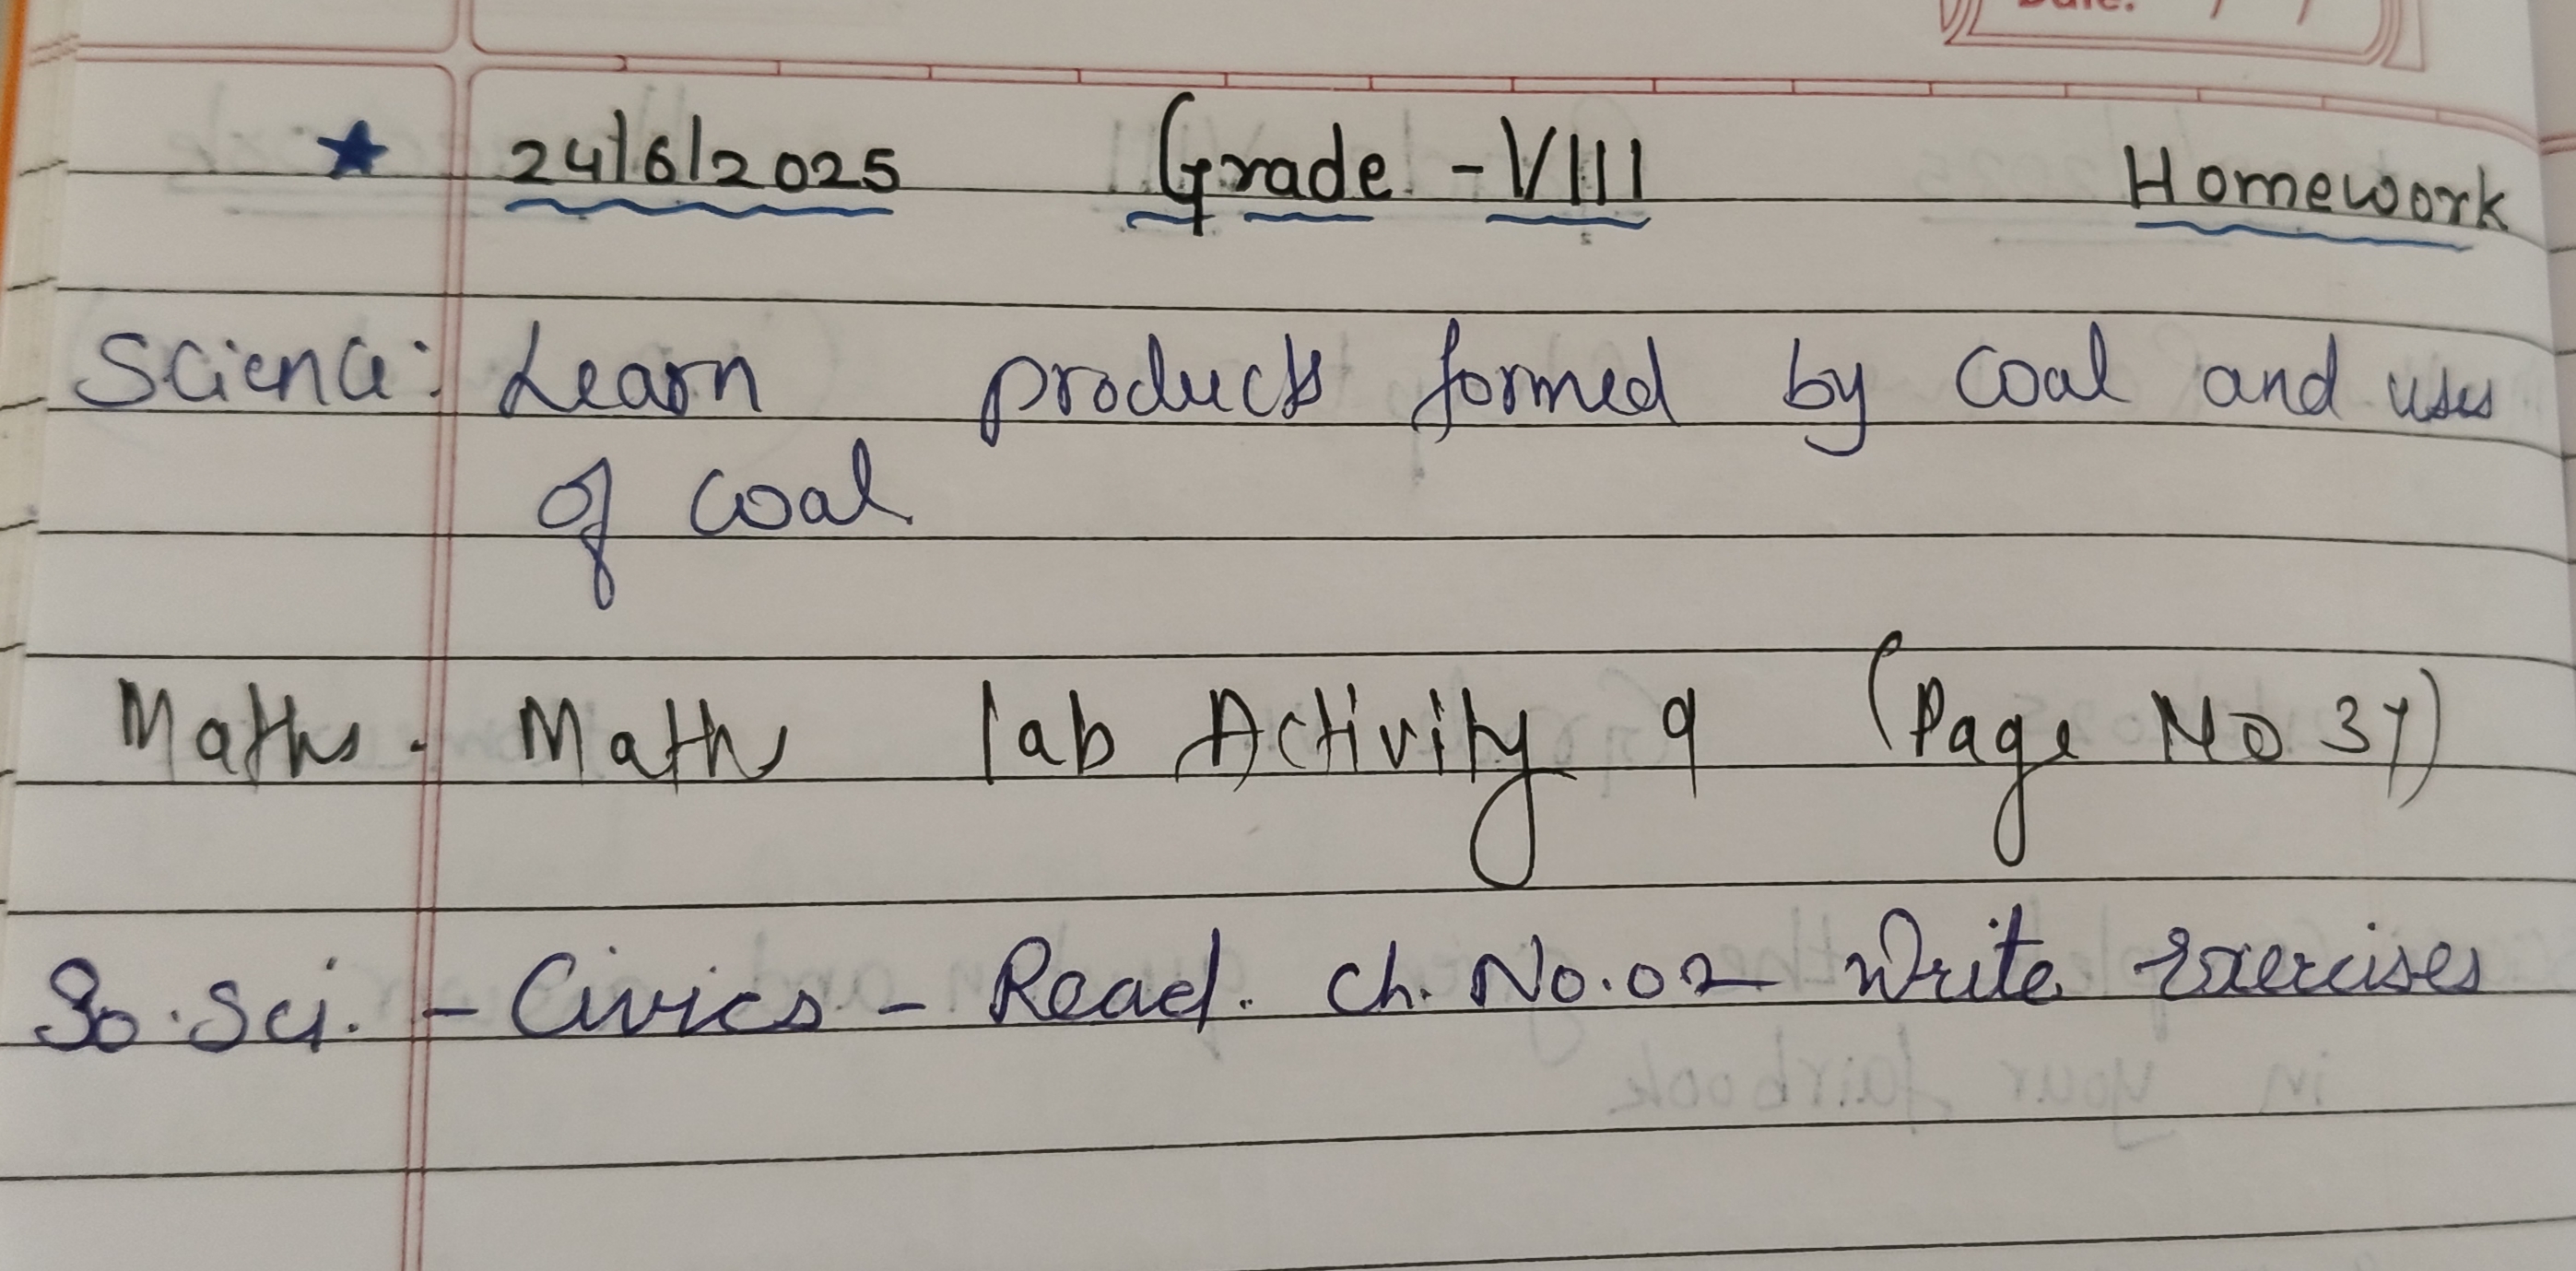 Date: / /
★ 24/6/2025 Grade - VIII Homework
Science: Learn products formed by coal and uses
of coal
Maths. Maths lab Activity 9 (Page No 37)
So. Sci. - Civics - Read. Ch. No. 02 Write Exercises